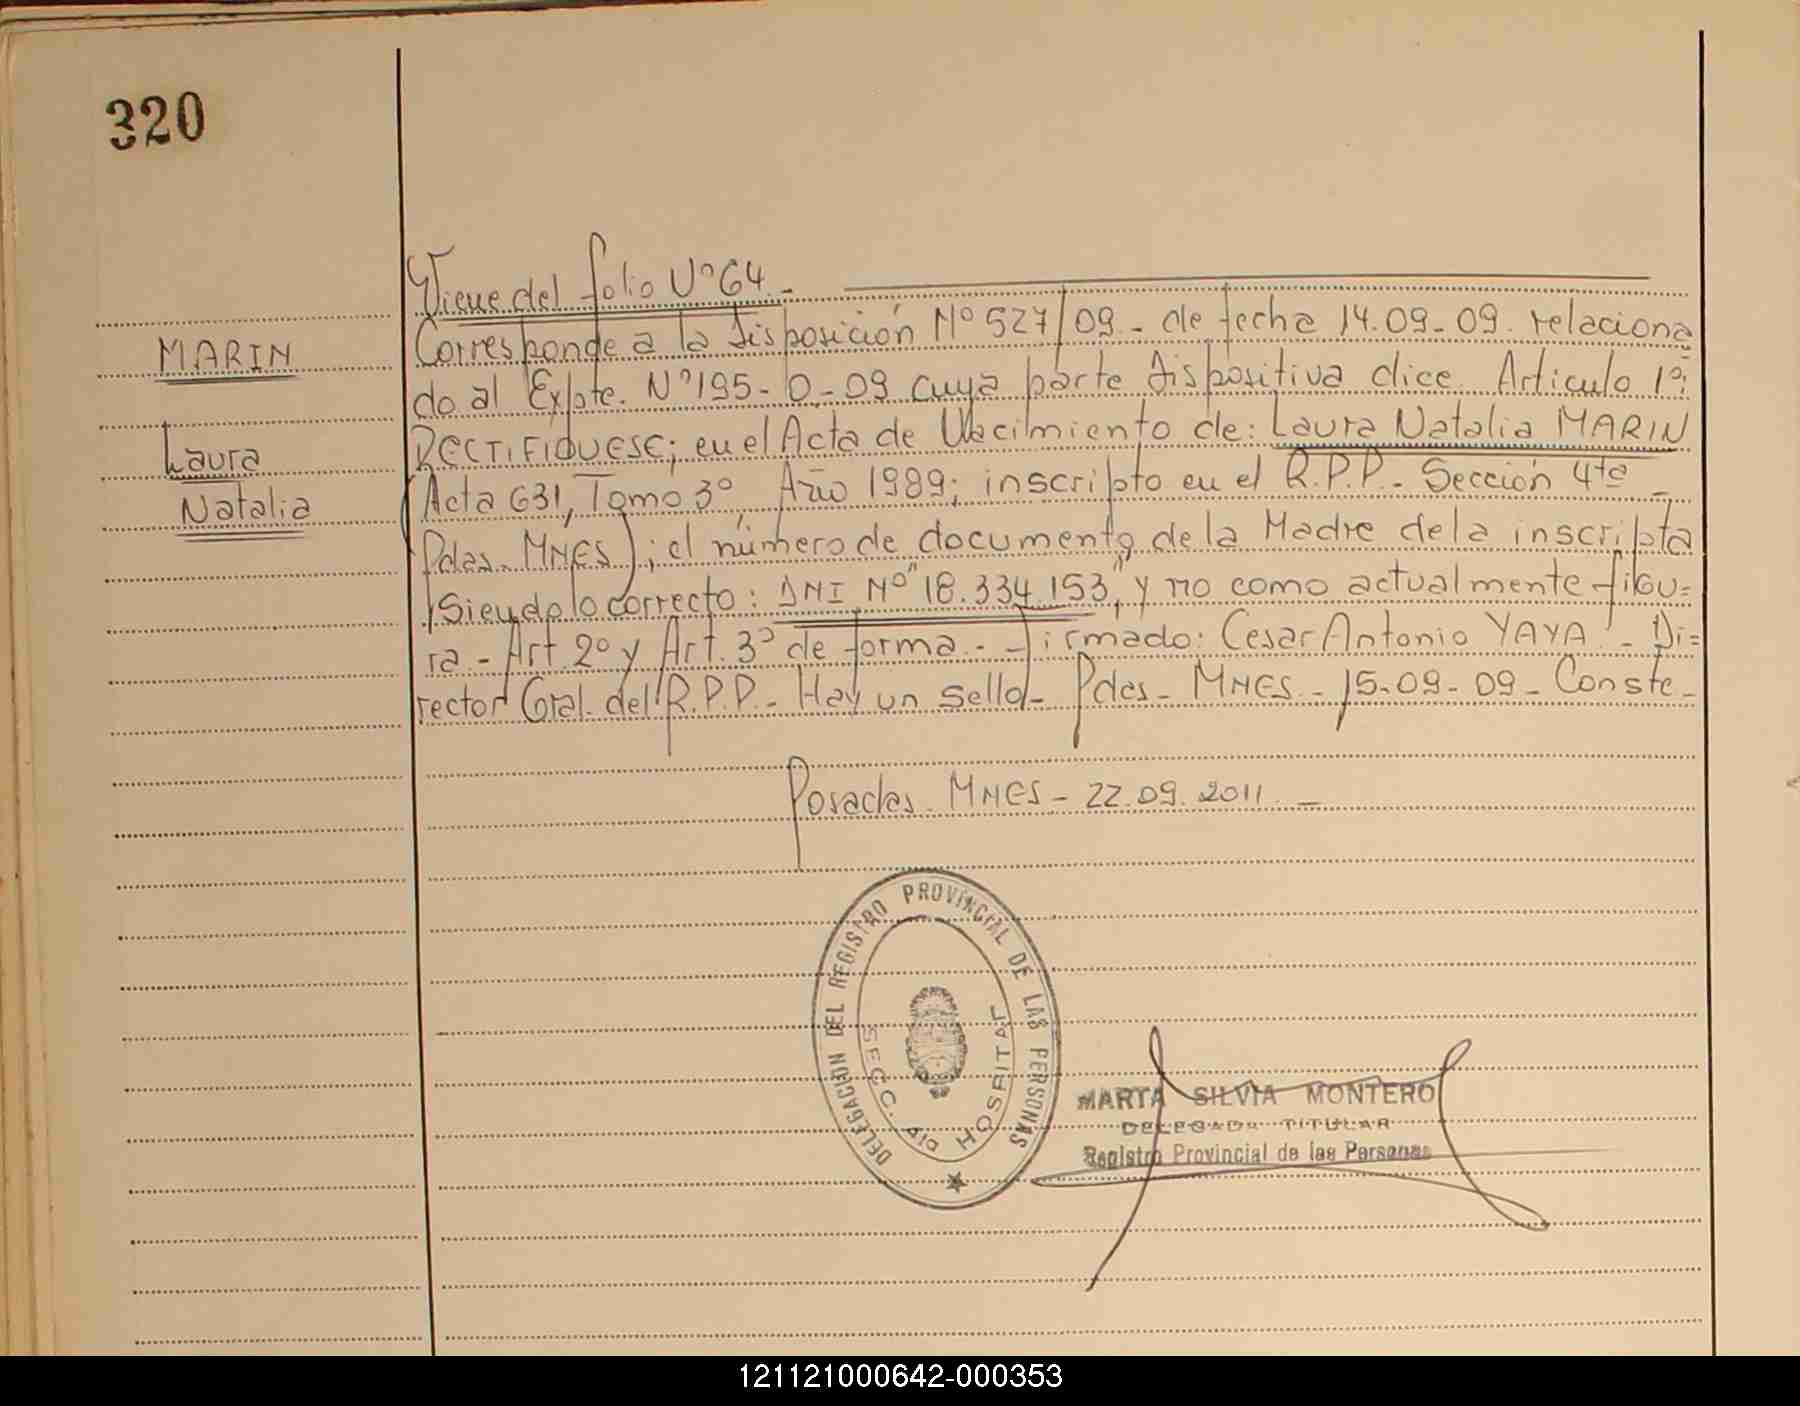 320
MARIN
Laura
Natalia
Viene del folio Nº 64.-
Corresponde a la Disposición Nº 527/09.- de fecha 14.09-09. relaciona
do al Expte. Nº 195-0-09 cuya parte dispositiva dice. Articulo 1º:
RECTIFIQUESE; en el Acta de Nacimiento de: Laura Natalia MARIN
(Acta 631, Tomo 3º, Año 1989; inscripto en el R.P.P.- Sección 4ta -
Pdas. MNES); el número de documento de la Madre de la inscripta
Siendo lo correcto: DNI Nº "18.334.153", y no como actualmente figu=
ra.- Art. 2º y Art. 3º de forma.- Firmado: Cesar Antonio YAYA - Di=
rector Gral. del R.P.P.- Hay un sello- Pdas- MNES.- 15-09-09- Conste-
Posadas. MNES- 22.09.2011.-
DELEGACION DEL REGISTRO PROVINCIAL DE LAS PERSONAS
SECC. 4ta HOSPITAL
MARTA SILVIA MONTERO
DELEGADA TITULAR
Registro Provincial de las Personas
121121000642-000353